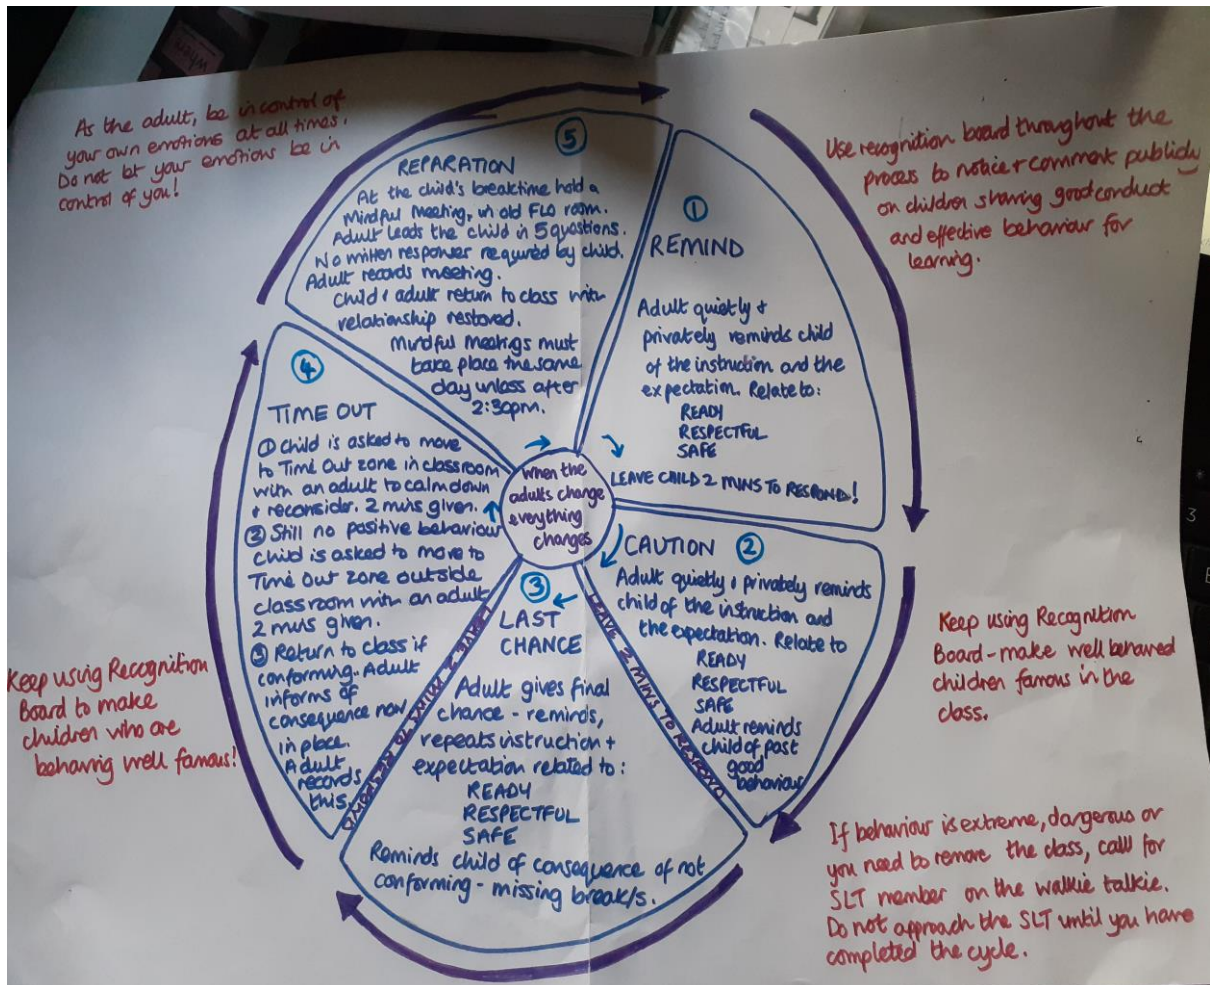 where
As the adult, be in control of
your own emotions at all times.
Do not let your emotions be in
control of you!
Use recognition board throughout the
process to notice + comment publicly
on children sharing good conduct
and effective behaviour for
learning.
①
REMIND
Adult quietly +
privately reminds child
of the instruction and the
expectation. Relate to:
READY
RESPECTFUL
SAFE
LEAVE CHILD 2 MINS TO RESPOND!
CAUTION ②
Adult quietly + privately reminds
child of the instruction and
the expectation. Relate to
READY
RESPECTFUL
SAFE
Adult reminds
child of past
good
behaviour
LEAVE 2 MINS TO RESPOND
③
LAST
CHANCE
Adult gives final
chance - reminds,
repeats instruction +
expectation related to:
READY
RESPECTFUL
SAFE
Reminds child of consequence of not
conforming - missing break/s.
LEAVE 2 MINS TO RESPOND
④
TIME OUT
① Child is asked to move
to Time Out zone in classroom
with an adult to calm down
+ reconsider. 2 mins given.
② Still no positive behaviour
child is asked to move to
Time Out zone outside
classroom with an adult
2 mins given.
③ Return to class if
conforming. Adult
informs of
consequence now
in place.
Adult
records
this.
⑤
REPARATION
At the child's breaktime hold a
Mindful Meeting, in old FLO room.
Adult leads the child in 5 questions.
No written response required by child.
Adult records meeting.
Child + adult return to class with
relationship restored.
Mindful meetings must
take place the same
day unless after
2:30pm.
when the
adults change
everything
changes
Keep using Recognition
Board - make well behaved
children famous in the
class.
Keep using Recognition
Board to make
children who are
behaving well famous!
If behaviour is extreme, dangerous or
you need to remove the class, call for
SLT member on the walkie talkie.
Do not approach the SLT until you have
completed the cycle.
3